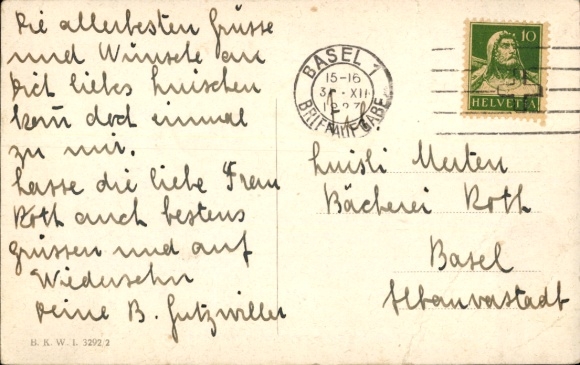 Die allerbesten Grüsse
und Wünsche an
Dich liebes Luischen
kom doch einmal
zu mir.
Lasse die liebe Frau
Roth auch bestens
grüssen und auf
Wiedersehn
Deine B. Gutzwiller
B. K. W. I. 3292/2
BASEL 1
15-16
XII
BRIEFAUFGABE
10
HELVETIA
Luisli Merten
Bächerei Roth
Basel
Albanvorstadt